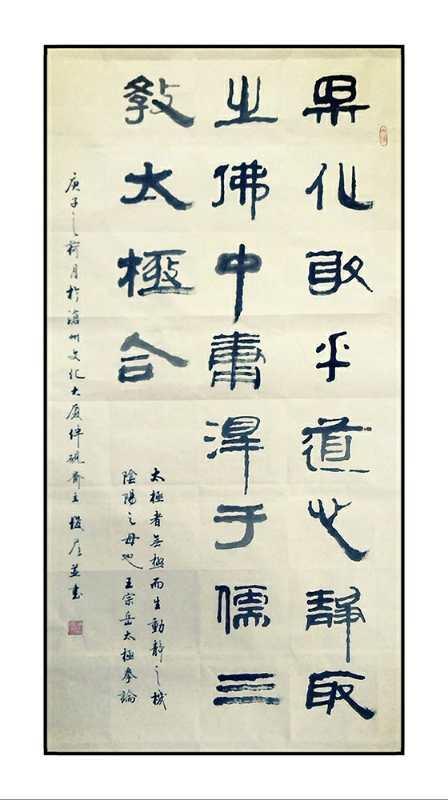 果化取乎道心靜取
之佛中肅淂于儒三
教太極合
太極者無極而生動靜之機
陰陽之母也王宗岳太極拳論
庚子之荷月於滄州文化大廈伴硯齋主並書